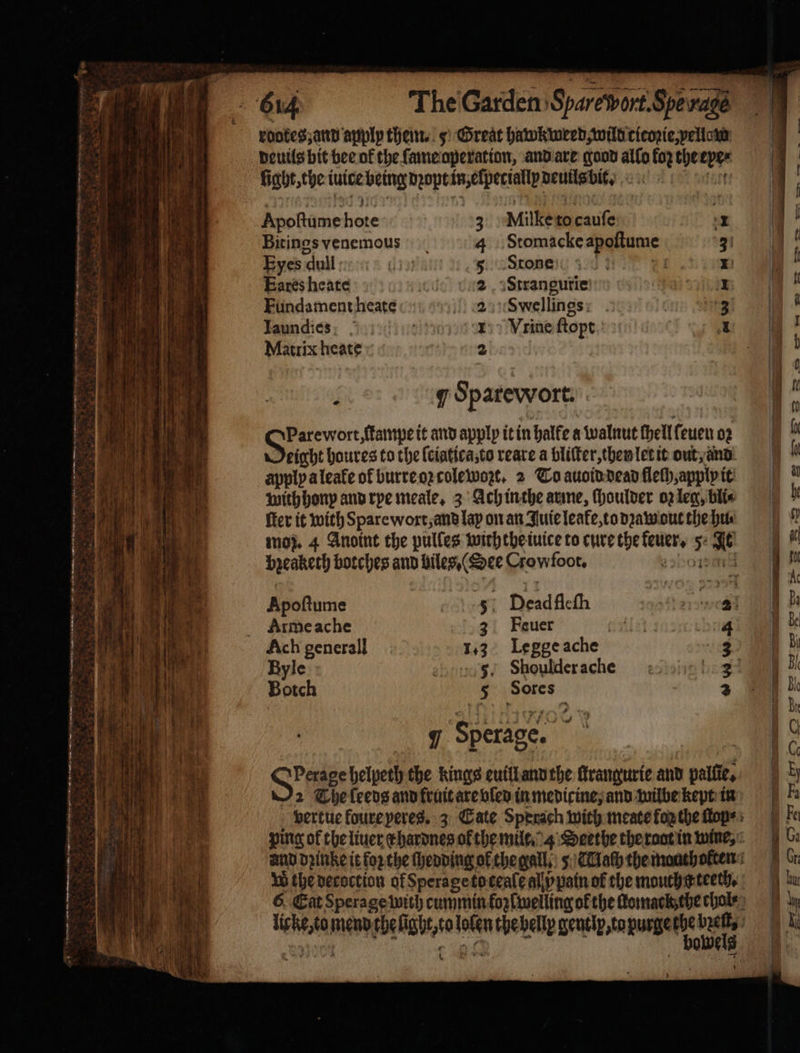 614 The Garden Sparewort. Sperage
rootes, and apply them. 5 Great hawkweed, wild cicorie, yellow
deuils bit bee of the same operation, and are good also for the eye-
sight, the iuice being dropt in, especially deuils bit.
Apostume hote 3 Milke to cause 1
Bitings venemous 4 Stomacke apostume 3
Eyes dull 5 Stone 1
Eares heate 2 Strangurie 1
Fundament heate 2 Swellings 3
Iaundies 1 Vrine stopt 1
Matrix heate 2
¶ Sparewort.
SParewort, stampe it and apply it in halfe a walnut shell seuen or
eight houres to the sciatica, to reare a blister, then let it out, and
apply a leafe of burre or colewort. 2 To auoid dead flesh, apply it
with hony and rye meale. 3 Ach in the arme, shoulder or leg, bli-
ster it with Sparewort, and lay on an Iuie leafe, to draw out the hu-
mor. 4 Anoint the pulses with the iuice to cure the feuer. 5 It
breaketh botches and biles, (See Crowfoot.
Apostume 5 Dead flesh 2
Arme ache 3 Feuer 4
Ach generall 1.3 Legge ache 3
Byle 5. Shoulder ache 3
Botch 5 Sores 3
¶ Sperage.
SPerage helpeth the kings euill and the strangurie and palsie.
2 The seeds and fruit are vsed in medicine, and wil be kept in
vertue foure yeres. 3 Eate Sperach with meate for the stop-
ping of the liuer & hardnes of the milt. 4 Seethe the root in wine,
and drinke it for the shedding of the gall. 5 Wash the mouth often
with the decoction of Sperage to cease all ye pain of the mouth & teeth.
6. Eat Sperage with cummin for swelling of the stomack, the chol-
licke, to mend the sight, to losen the belly gently, to purge the brest,
bowels